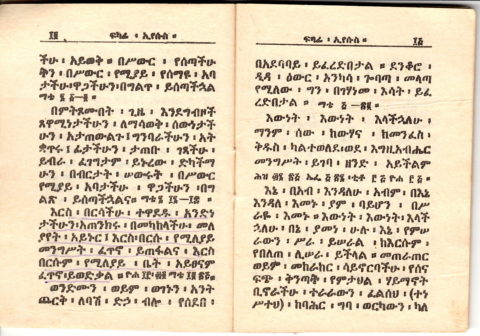 ፲፬ ፍካሬ ፡ ኢየሱስ ።
ችሁ ፡ አይወቅ ። በሥውር ፡ የሰጣችሁ
ቅን ፡ በሥውር ፡ የሚያይ ፡ የሰማዩ ፡ አባ
ታችሁ፡ዋጋችሁን፡በግልጥ ፡ ይሰጣችኋል
ማቴ
በምትጾሙበት ፡ ጊዜ ፡ እንደግብዞች
ጾምሂኖታችሁን ፡ ለማሳወቅ ፡ ሰውነታች
ሁን ፡ አታጠውልጉ ፡ ግንባራችሁን ፡ አት
ቋጥሩ ፡ ፊታችሁን ፡ ታጠቡ ፡ ገጻችሁ ፡
ይብራ ፡ ፈገግታም ፡ ይኑረው ፡ ድካችማ
ሁን ፡ በብርታት ፡ ሠውሩት ፡ በሥውር
የሚያይ ፡ አባታችሁ ፡ ዋጋችሁን ፡ በግ
ልጽ ፡ ይሰጣችኋልና ። ማቴ
እርስ ፡ በርሳችሁ ፡ ተዋደዱ ፡ አንድነ
ታችሁን፡አጠንክሩ ፡ በመካከላችሁ ፡ መለ
የየት ፡ አይኑር ፡ እርስ፡በርሱ ፡ የሚለያይ
መንግሥት ፡ ፈጥኖ ፡ ይጠፋልና ፡ እርስ
በርሱም ፡ የሚለያይ ፡ ቤት ፡ አይፀናም
ፈጥኖ፡ይወድቃል ።
ወንድሙን ፡ ወይም ፡ ወገኑን ፡ አንት
ጨርቅ ፡ ለባሽ ፡ ድኃ ፡ ብሎ ፡ የሰደበ ፡
ፍካሬ ፡ ኢየሱስ ። ፲፭
በአደባባይ ፡ ይፈረድበታል ። ደንቆሮ ፡
ዲዳ ፡ ዕውር ፡ አንካሳ ፡ ጐባጣ ፡ መላጣ
የሚለው ፡ ግን ፡ በገሃነመ ፡ እሳት ፡ ይፈ
ረድበታል ። ማቴ
እውነት ፡ እውነት ፡ እላችኋለሁ ፡
ማንም ፡ ሰው ፡ ከውሃና ፡ ከመንፈስ ፡
ቅዱስ ፡ ካልተወለደ፡ወደ ፡ እግዚአብሔር
መንግሥት ፡ ይገባ ፡ ዘንድ ፡ አይችልም
እኔ ፡ በአብ ፡ እንዳለሁ ፡ አብም ፡ በእኔ
እንዳለ ፡ እመኑ ፡ ያም ፡ ባይሆን ፡ በሥ
ራዬ ፡ እመኑ ። እውነት ፡ እውነት፡እላች
ኋለሁ ፡ በኔ ፡ ያመነ ፡ ሁሉ ፡ እኔ ፡ የምሠ
ራውን ፡ ሥራ ፡ ይሠራል ፡ ከእርሱም ፡
የበለጠ ፡ ሊሠራ ፡ ይችላል ። መጠራጠር
ወይም ፡ መከራከር ፡ ሳይኖርባችሁ ፡ የሰና
ፍጭ ፡ ቅንጣቅ ፡ የምታህል ፡ ሃይማኖት
ቢኖራችሁ ፡ ተራራውን ፡ ፈልሰህ ፡ (ተነ
ሥተህ) ፡ ከባሕር ፡ ግባ ፡ ወርካውን ፡ ካለ